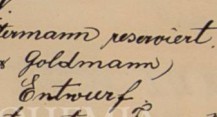 termann reserviert.
Goldmann)
Entwurf